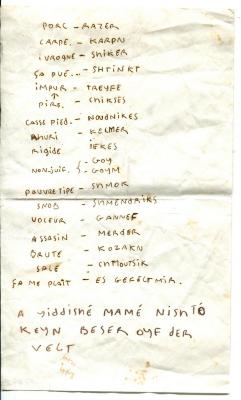 PORC - RAZER
CARPE. - KARPN
IVROGNE - SHIKER
ÇA PUE... - SHTINKT
IMPUR - TREYFE
↑
PIRE. - CHIKSES
CASSE PIED. - NOUDNIKES
AHURI - KELMER
RIGIDE IEKES
NON.JUIF. { - GOY
- GOYM
PAUVRE TIPE - SHMOK
SNOB - SHMENDRIKS
VOLEUR - GANNEF
ASSASIN - MERDER
BRUTE - KOZAKN
SALE - CHMOUTSIR
ÇA ME PLAÎT - ES GEFELTMIR.
A YIDDISHÉ MAMÉ NISHTÓ
KEYN BESER OYF DER
VELT